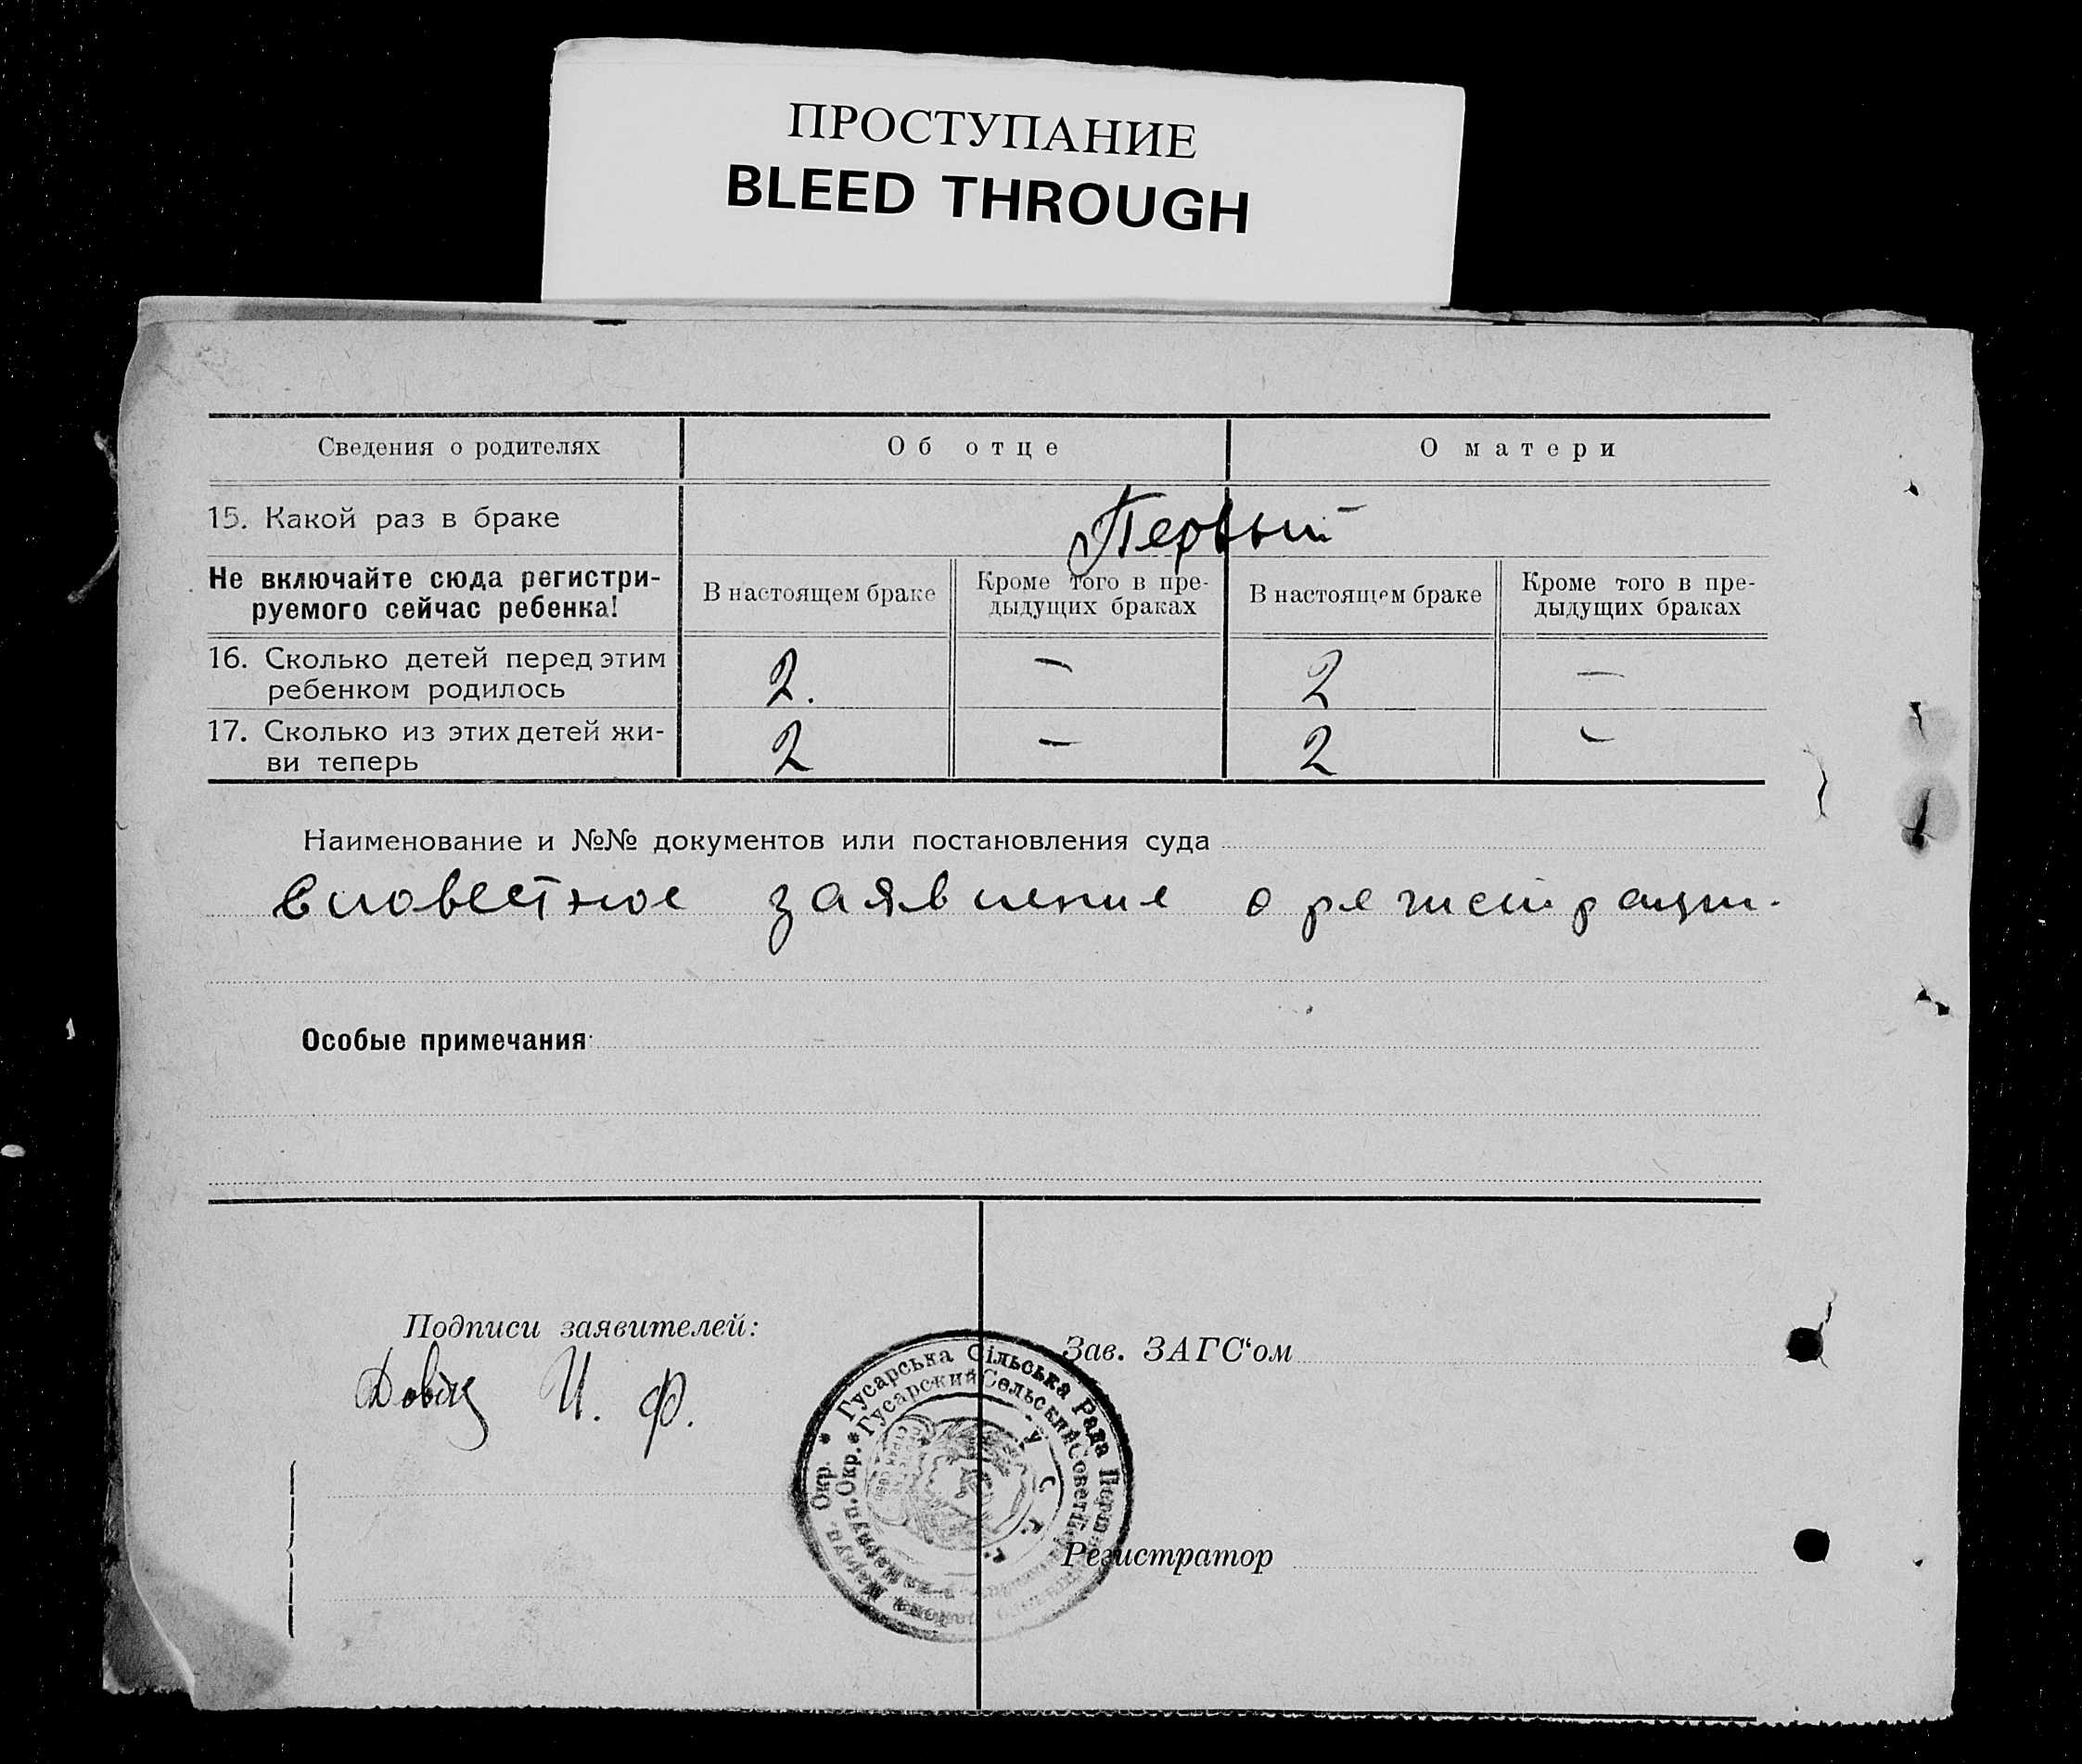 ПРОСТУПАНИЕ
BLEED THROUGH
Сведения о родителях Об отце О матери
15. Какой раз в браке Первый
Не включайте сюда регистри-
руемого сейчас ребенка!
В настоящем браке
Кроме того в пре-
дыдущих браках
В настоящем браке
Кроме того в пре-
дыдущих браках
16. Сколько детей перед этим
ребенком родилось 2. — 2 —
17. Сколько из этих детей жи-
ви теперь 2 — 2 —
Наименование и №№ документов или постановления суда
Словестное заявление о регистрации.
Особые примечания
Подписи заявителей:
И. Ф.
Зав. ЗАГС'ом
Регистратор
Гусарська Сільська Рада
Маріуп. Окр.
Гусарский Сельский Совет
Мариуп. Окр.